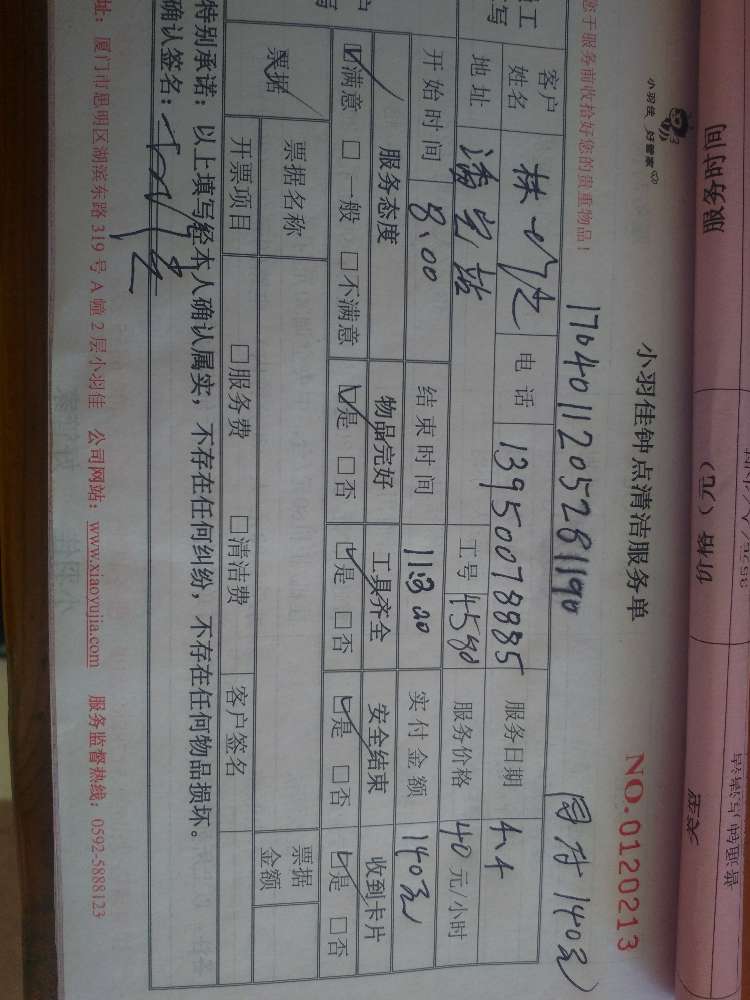 服务时间
价格（元）
小羽佳 好管家
小羽佳钟点清洁服务单
NO.0120213
您于服务前收拾好您的贵重物品！
1704011205281190
140元
客户
姓名
林
电话
13950078885
服务日期
4.4
地址
工号
4580
服务价格
40元/小时
开始时间
8:00
结束时间
实付金额
140元
服务态度
物品完好
工具齐全
安全结束
收到卡片
☑满意 □一般 □不满意
☑是 □否
☑是 □否
☑是 □否
☑是 □否
票据
票据名称
票据
金额
开票项目
□服务费 □清洁费
客户签名
特别承诺：以上填写经本人确认属实，不存在任何纠纷，不存在任何物品损坏。
确认签名：
址：厦门市思明区湖滨东路319号A幢2层小羽佳 公司网站：www.xiaoyujia.com 服务监督热线：0592-5888123